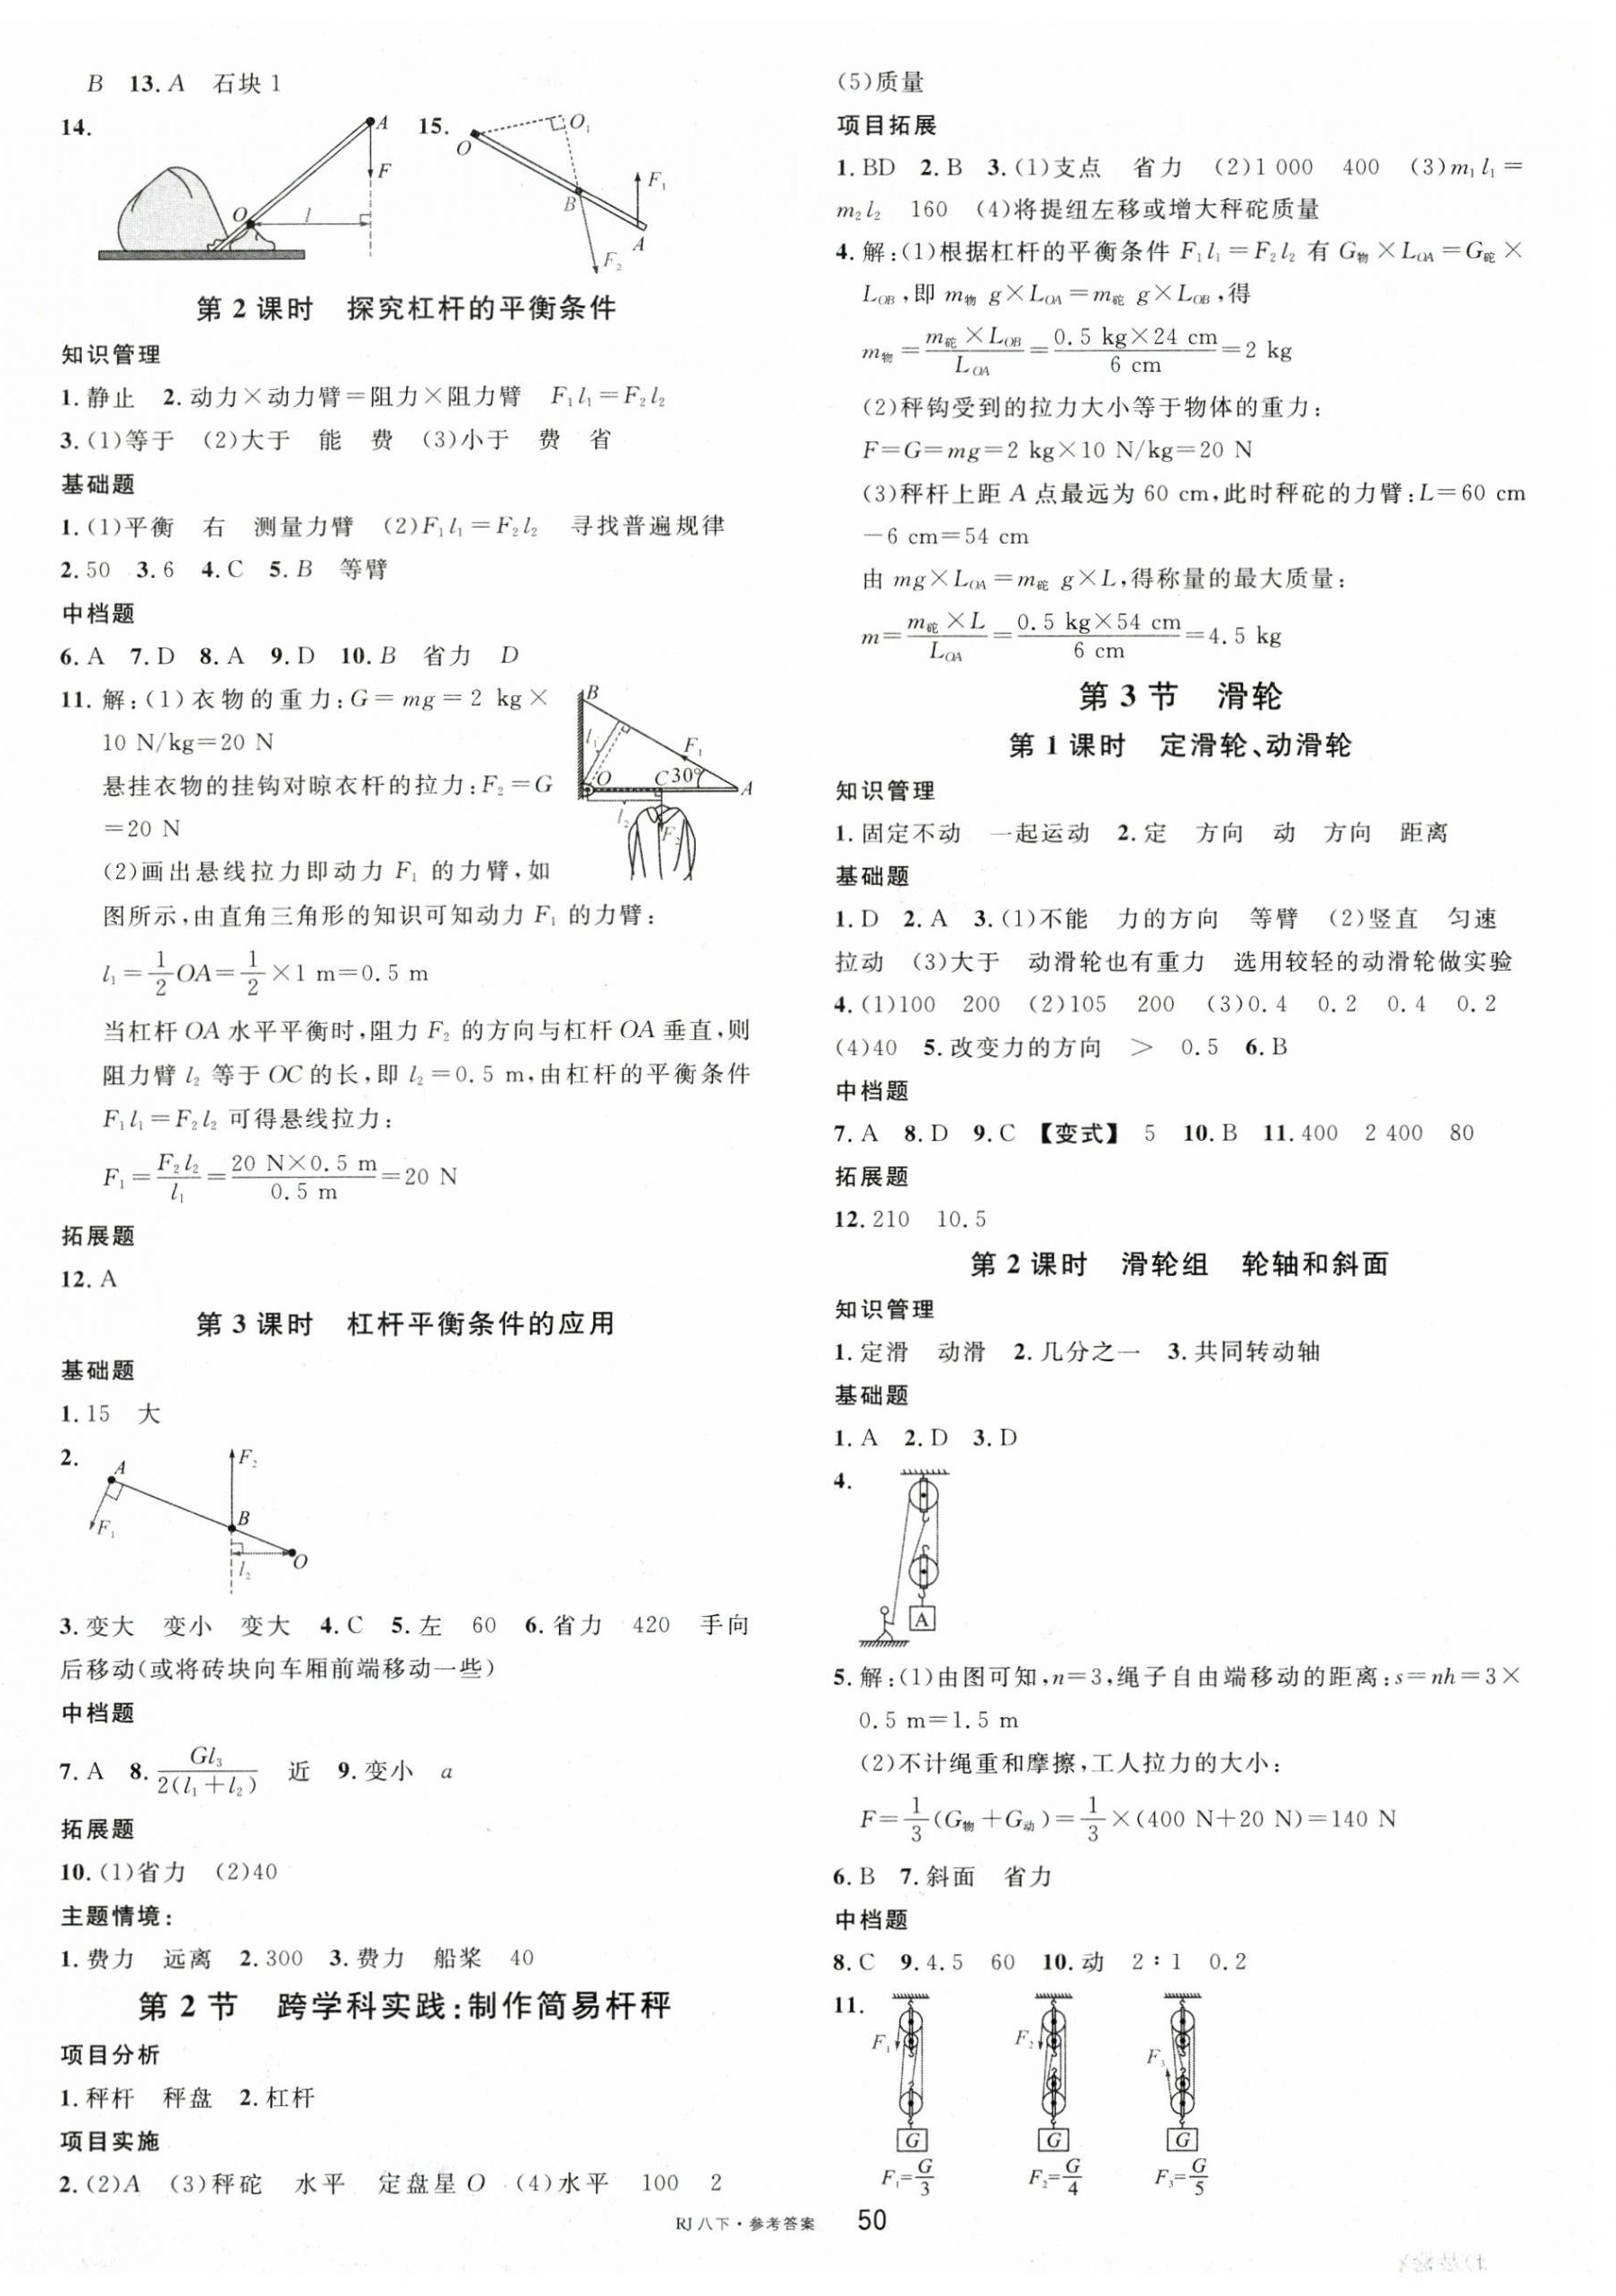 B 13. A 石块 1
14.
A
F
O
l
15.
O
O₁
B
F₁
A
F₂
第 2 课时 探究杠杆的平衡条件
知识管理
1. 静止 2. 动力×动力臂=阻力×阻力臂 F₁l₁=F₂l₂
3. (1)等于 (2)大于 能 费 (3)小于 费 省
基础题
1. (1)平衡 右 测量力臂 (2)F₁l₁=F₂l₂ 寻找普遍规律
2. 50 3. 6 4. C 5. B 等臂
中档题
6. A 7. D 8. A 9. D 10. B 省力 D
11. 解:(1)衣物的重力:G=mg=2 kg×
10 N/kg=20 N
悬挂衣物的挂钩对晾衣杆的拉力:F₂=G
=20 N
(2)画出悬线拉力即动力 F₁ 的力臂,如
图所示,由直角三角形的知识可知动力 F₁ 的力臂:
B
l₁
F₁
O
C
30°
A
l₂
F₂
l₁=1/2 OA=1/2×1 m=0.5 m
当杠杆 OA 水平平衡时,阻力 F₂ 的方向与杠杆 OA 垂直,则
阻力臂 l₂ 等于 OC 的长,即 l₂=0.5 m,由杠杆的平衡条件
F₁l₁=F₂l₂ 可得悬线拉力:
F₁=F₂l₂/l₁=20 N×0.5 m/0.5 m=20 N
拓展题
12. A
第 3 课时 杠杆平衡条件的应用
基础题
1. 15 大
2.
A
F₁
F₂
B
l₂
O
3. 变大 变小 变大 4. C 5. 左 60 6. 省力 420 手向
后移动(或将砖块向车厢前端移动一些)
中档题
7. A 8. Gl₃/2(l₁+l₂) 近 9. 变小 a
拓展题
10. (1)省力 (2)40
主题情境:
1. 费力 远离 2. 300 3. 费力 船桨 40
第 2 节 跨学科实践:制作简易杆秤
项目分析
1. 秤杆 秤盘 2. 杠杆
项目实施
2. (2)A (3)秤砣 水平 定盘星 O (4)水平 100 2
(5)质量
项目拓展
1. BD 2. B 3. (1)支点 省力 (2)1 000 400 (3)m₁l₁=
m₂l₂ 160 (4)将提纽左移或增大秤砣质量
4. 解:(1)根据杠杆的平衡条件 F₁l₁=F₂l₂ 有 G物×LOA=G砣×
LOB,即 m物 g×LOA=m砣 g×LOB,得
m物=m砣×LOB/LOA=0.5 kg×24 cm/6 cm=2 kg
(2)秤钩受到的拉力大小等于物体的重力:
F=G=mg=2 kg×10 N/kg=20 N
(3)秤杆上距 A 点最远为 60 cm,此时秤砣的力臂:L=60 cm
-6 cm=54 cm
由 mg×LOA=m砣 g×L,得称量的最大质量:
m=m砣×L/LOA=0.5 kg×54 cm/6 cm=4.5 kg
第 3 节 滑轮
第 1 课时 定滑轮、动滑轮
知识管理
1. 固定不动 一起运动 2. 定 方向 动 方向 距离
基础题
1. D 2. A 3. (1)不能 力的方向 等臂 (2)竖直 匀速
拉动 (3)大于 动滑轮也有重力 选用较轻的动滑轮做实验
4. (1)100 200 (2)105 200 (3)0.4 0.2 0.4 0.2
(4)40 5. 改变力的方向 > 0.5 6. B
中档题
7. A 8. D 9. C 【变式】 5 10. B 11. 400 2 400 80
拓展题
12. 210 10.5
第 2 课时 滑轮组 轮轴和斜面
知识管理
1. 定滑 动滑 2. 几分之一 3. 共同转动轴
基础题
1. A 2. D 3. D
4.
A
5. 解:(1)由图可知,n=3,绳子自由端移动的距离:s=nh=3×
0.5 m=1.5 m
(2)不计绳重和摩擦,工人拉力的大小:
F=1/3(G物+G动)=1/3×(400 N+20 N)=140 N
6. B 7. 斜面 省力
中档题
8. C 9. 4.5 60 10. 动 2∶1 0.2
11.
F₁ F₂ F₃
G G G
F₁=G/3 F₂=G/4 F₃=G/5
RJ 八下·参考答案 50